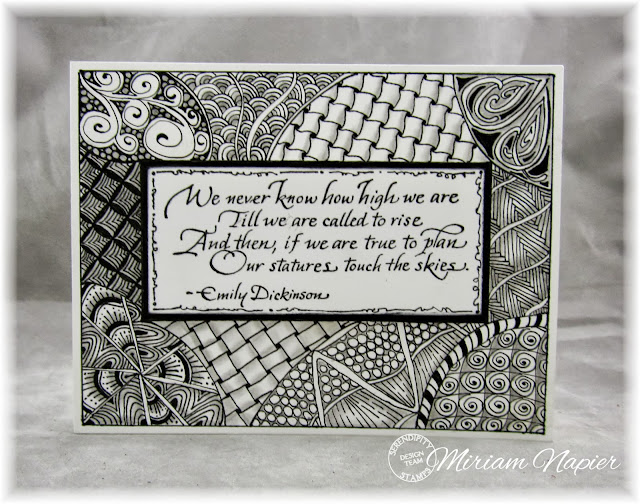 We never know how high we are
Till we are called to rise
And then, if we are true to plan
Our statures touch the skies.
--Emily Dickinson
SERENDIPITY
DESIGN
TEAM
STAMPS
Miriam Napier